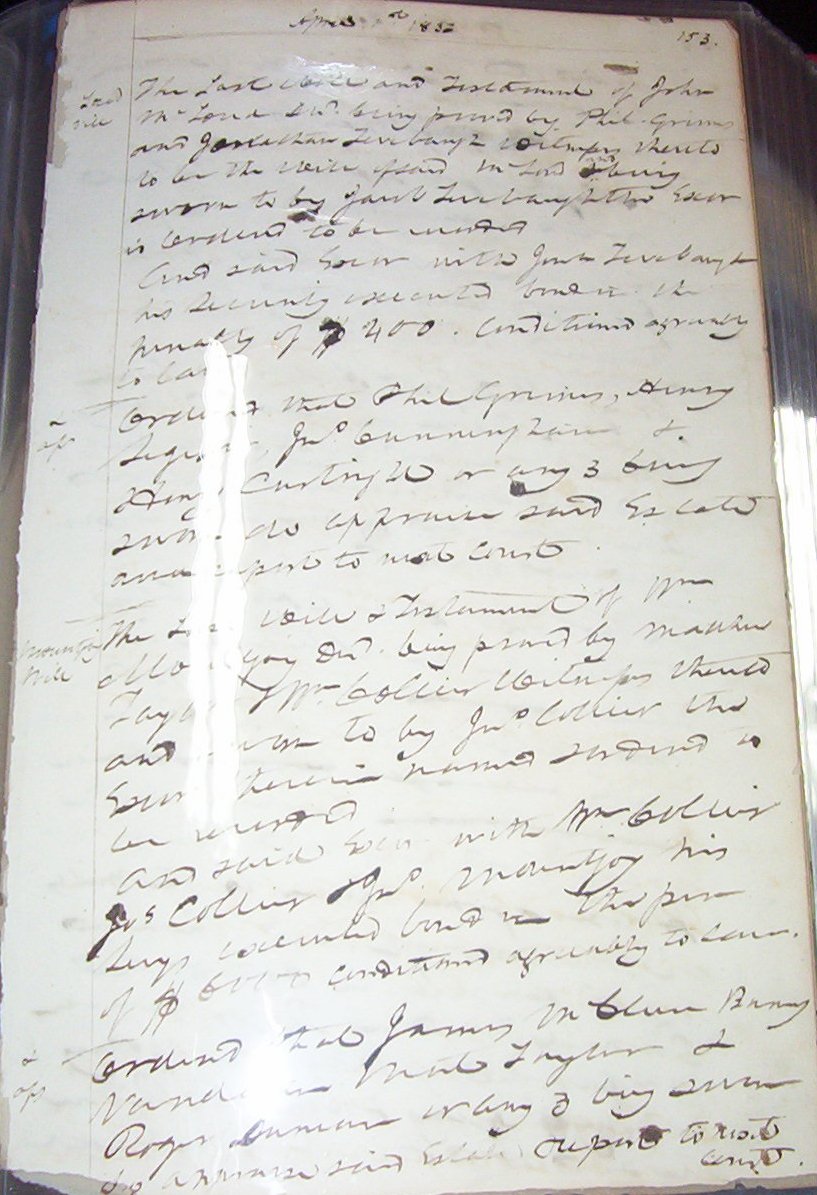 153.
Will
The Last Will and Testament of John
Mc Lord Decd. being proved by Phil Grimes
and Jonathan Tevebaugh Witness thereto
to be the Will of said Mc Lord and being
sworn to by Jacob Tevebaugh the Exor
is Ordered to be recorded
And said Exor with Tevebaugh
his Security executed bond in the
penalty of $ 400. Conditioned agreeably
to Law
&
aps
Ordered that Phil Grimes, Henry
Jno Cunningham &
Henry Curtright or any 3 being
sworn do appraise said Estate
and report to next Court.
Mountjoy
Will
The Last Will & Testament of Wm
Mountjoy Decd. being proved by
Taylor & Wm Collier Witness thereto
and sworn to by Jno Collier the
Exor therein named is ordered to
be recorded
And said Exor with Wm Collier
Jos Collier & Jno. Mountjoy his
executed bond in the pen
of $ 6000 conditioned agreeably to Law.
&
aps
Ordered that James McClure
Mat Taylor &
Roger or any 3 being sworn
do appraise said Estate report to next
Court.